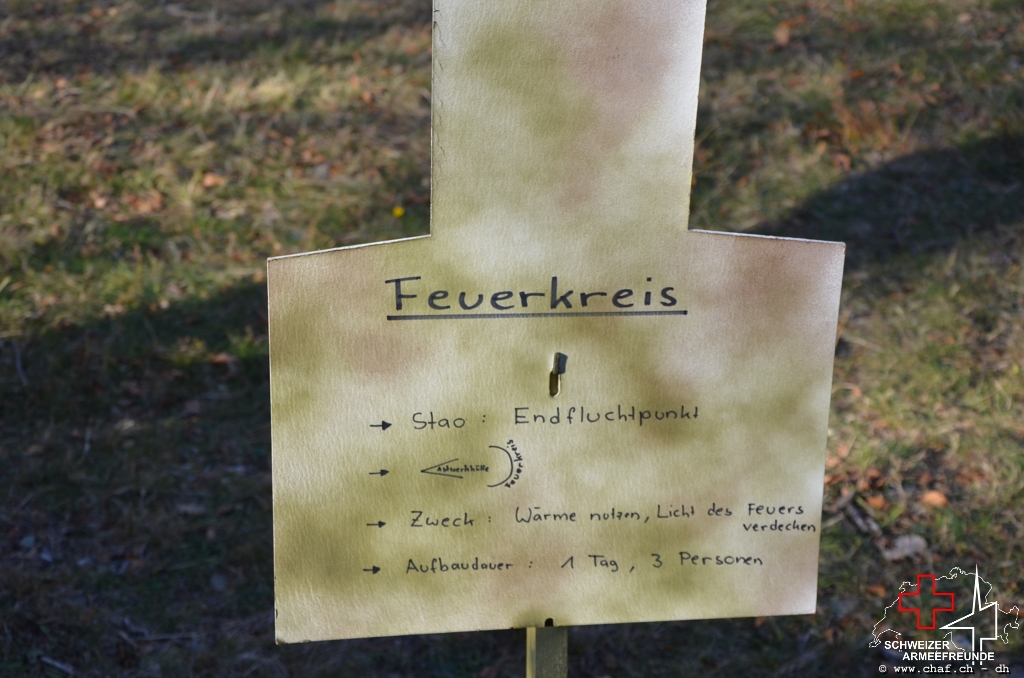 Feuerkreis
→ Stao : Endfluchtpunkt
→ Astwerkhütte Feuerkreis
→ Zweck : Wärme nutzen, Licht des Feuers
verdecken
→ Aufbaudauer : 1 Tag, 3 Personen
SCHWEIZER
ARMEEFREUNDE
© www.chaf.ch - dh